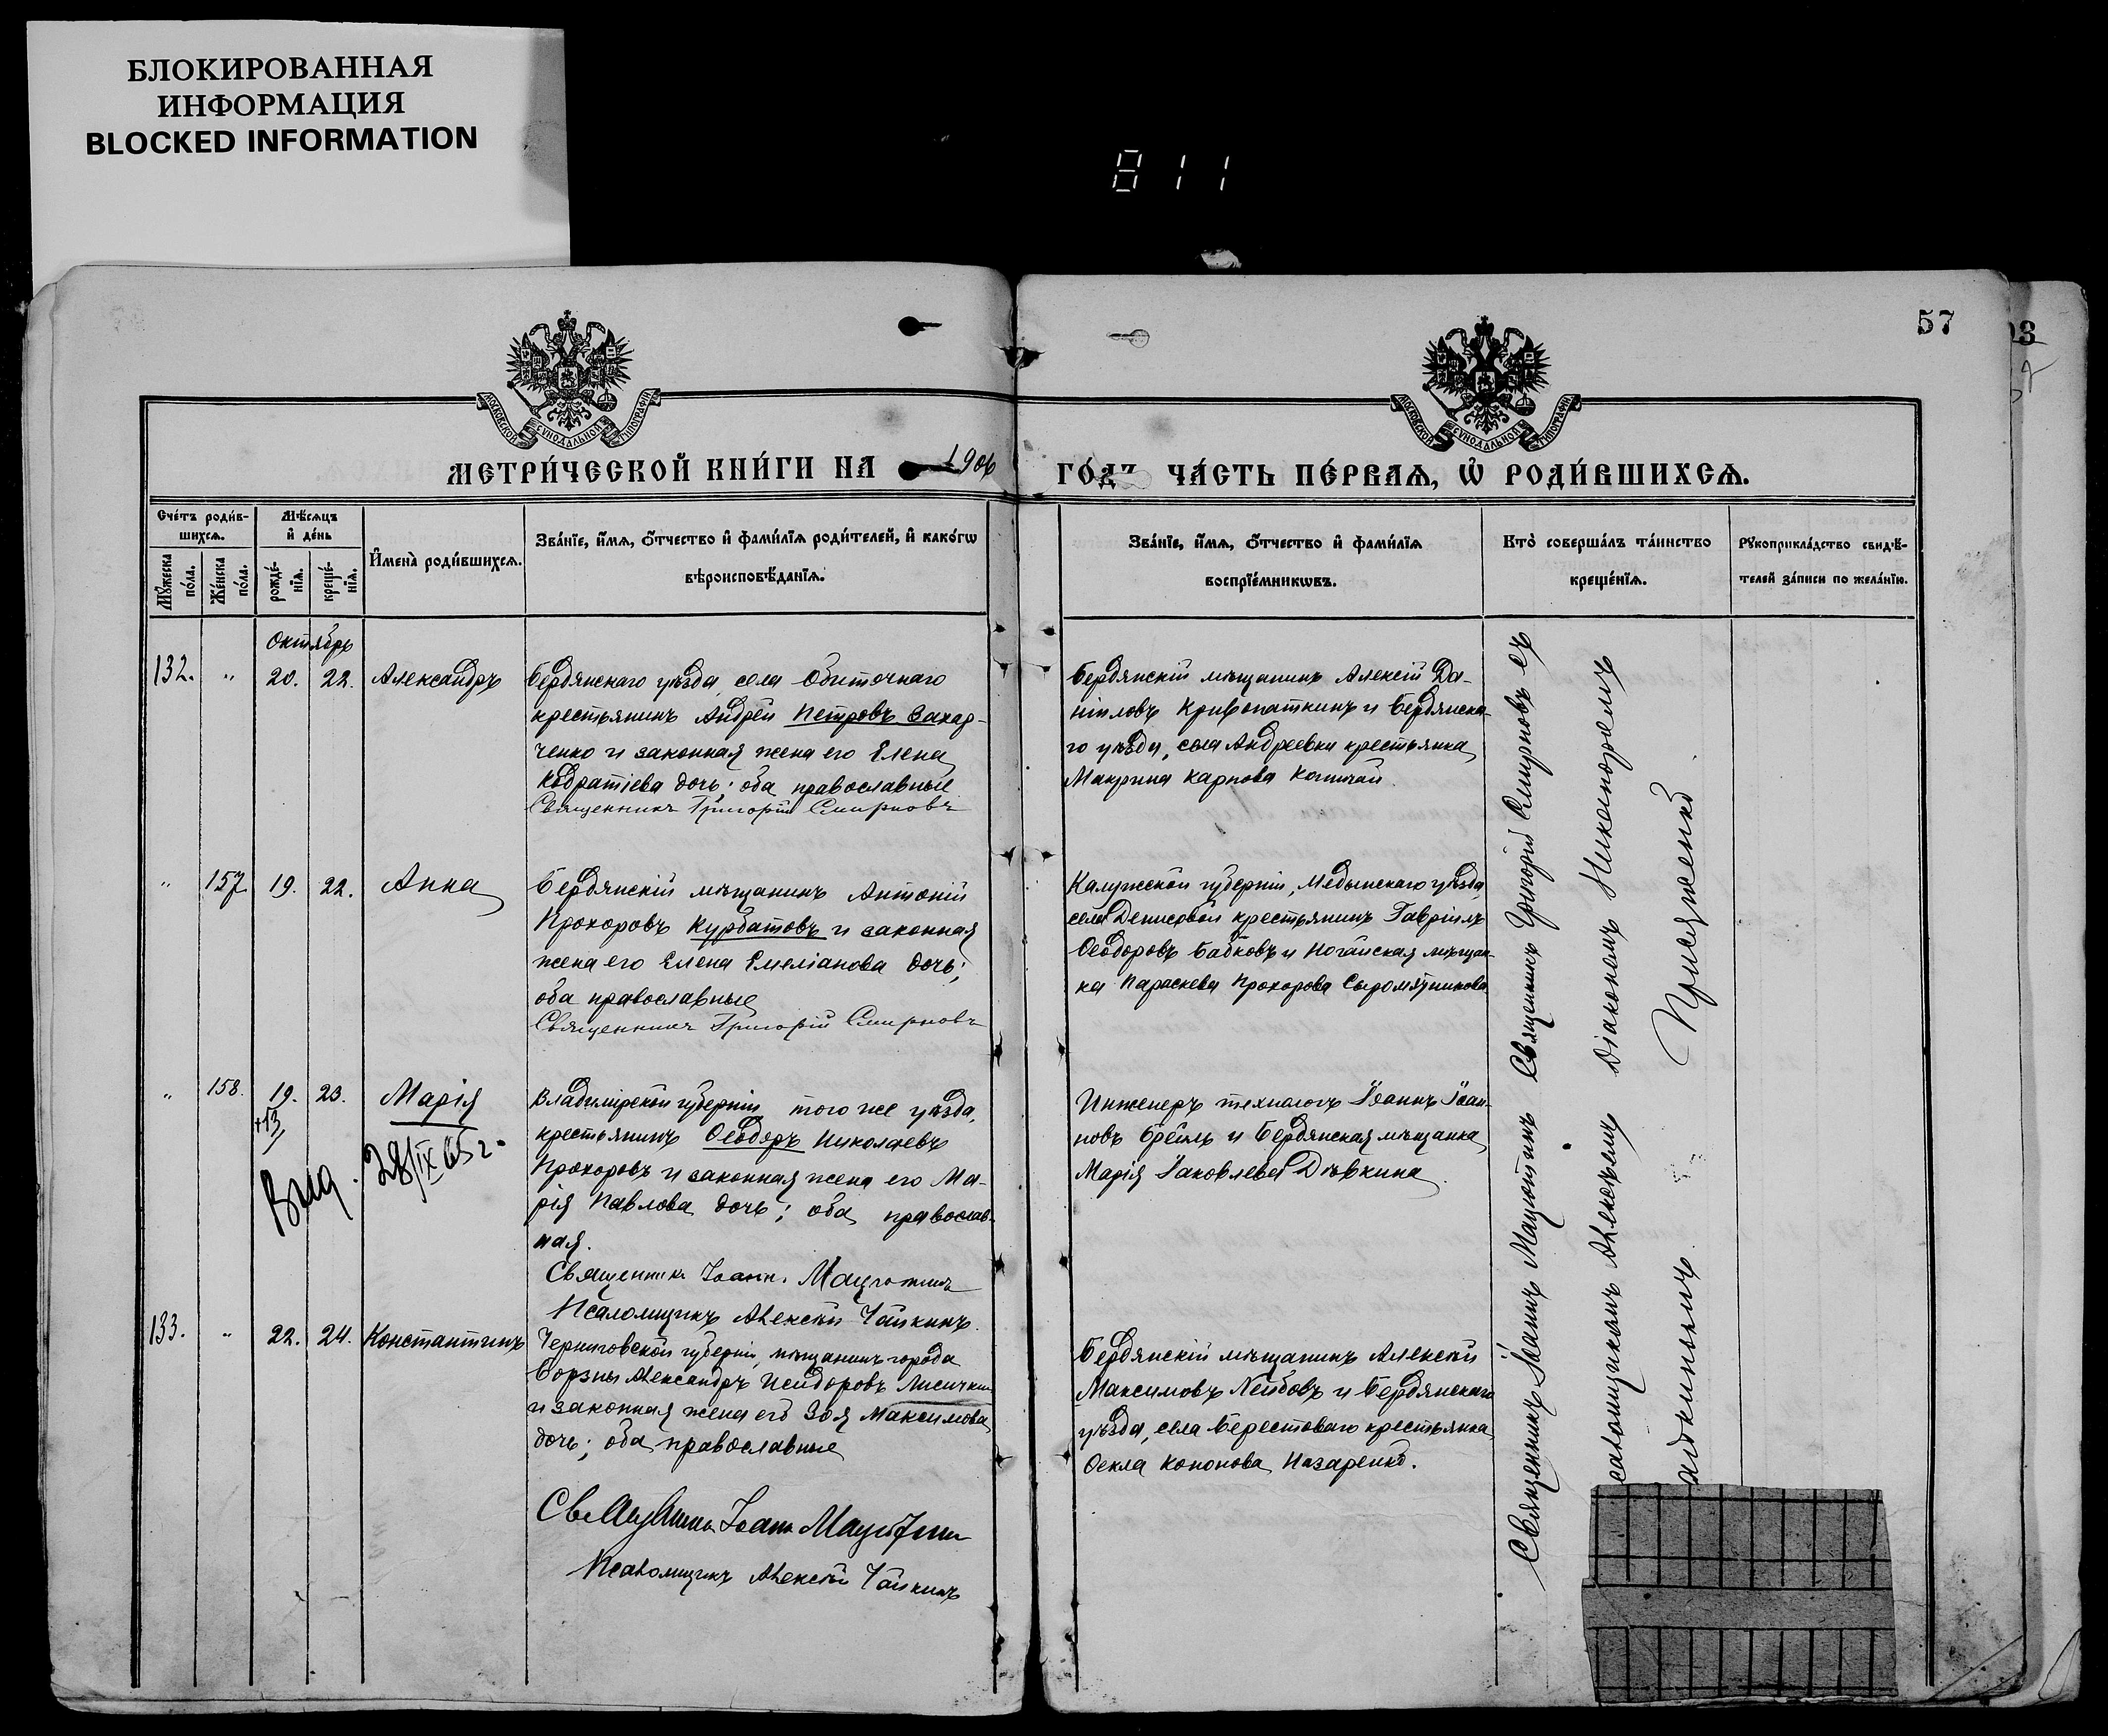 БЛОКИРОВАННАЯ
ИНФОРМАЦИЯ
BLOCKED INFORMATION
811
57
МОСКОВСКОЙ СУНОДАЛЬНОЙ ТИПОГРАФІИ
МОСКОВСКОЙ СУНОДАЛЬНОЙ ТИПОГРАФІИ
МЕТРИ́ЧЕСКОЙ КНИ́ГИ НА 1906
ГО́ДЪ ЧА́СТЬ ПЕ́РВАѦ, Ѡ РОДИ́ВШИХСѦ.
Сче́тъ роди́в-
шихсѧ.
Мꙋ́жеска по́ла.
Же́нска по́ла.
Мѣ́сѧцъ
и҆ де́нь
рожде́-
нїѧ.
креще́-
нїѧ.
И҆мена̀ роди́вшихсѧ.
Зва́нїе, и҆́мѧ, ѻ҆́тчество и҆ фами́лїѧ роди́телей, и҆ како́гѡ
вѣроисповѣ́данїѧ.
Зва́нїе, и҆́мѧ, ѻ҆́тчество и҆ фами́лїѧ
воспрїе́мникѡвъ.
Кто̀ соверша́лъ та́инство
креще́нїѧ.
Рꙋкоприкла́дство свидѣ́-
телей за́писи по жела́нїю.
Октябрь
132. " 20. 22. Александръ
Бердянскаго уѣзда, села Обиточнаго
крестьянинъ Андрей Петровъ Захар-
ченко и законная жена его Елена
Кодратіева дочь; оба православные
Священникъ Григорій Смирновъ
Бердянскій мѣщанинъ Алексій Да-
ніиловъ Кривопаткинъ и Бердянска-
го уѣзда, села Андреевки крестьянка
Макрина Карпова
" 157. 19. 22. Анна
Бердянскій мѣщанинъ Антоній
Прохоровъ Курбатовъ и законная
жена его Елена Емеліанова дочь;
оба православные
Священникъ Григорій Смирновъ
Калужской губерніи, Медынскаго уѣзда
села Денисовой крестьянинъ Гавріилъ
Ѳеодоровъ Бабковъ и Ногайская мѣщан-
ка Параскева Прохорова Сыромятникова
" 158. 19. 23. Марія
+13
Выд. 28/IX 65 г.
Владимірской губерніи, того же уѣзда,
крестьянинъ Ѳеодоръ Николаевъ
Прохоровъ и законная жена его Ма-
рія Павлова дочь; оба православ-
ная.
Священникъ Іоаннъ Мацютинъ
Псаломщикъ Алексій Чайкинъ
Инженеръ технологъ Іоаннъ Іоан-
новъ Брейль и Бердянская мѣщанка
Марія Іаковлева Дѣвкина
133. " 22. 24. Константинъ
Черниговской губерніи, мѣщанинъ города
Борзны Александръ Исидоровъ Лисичкинъ
и законная жена его Зоя Максимова
дочь; оба православные
Іоаннъ Мацютинъ
Псаломщикъ Алексій Чайкинъ
Бердянскій мѣщанинъ Алексій
Максимовъ Лейбовъ и Бердянскаго
уѣзда, села Берестоваго крестьянка
Ѳекла Кононова Назаренко.
Священникъ Іоаннъ Мацютинъ Священникъ Григорій Смирновъ съ
саломщикомъ Алексѣемъ Діакономъ Никаноромъ
Присяженко